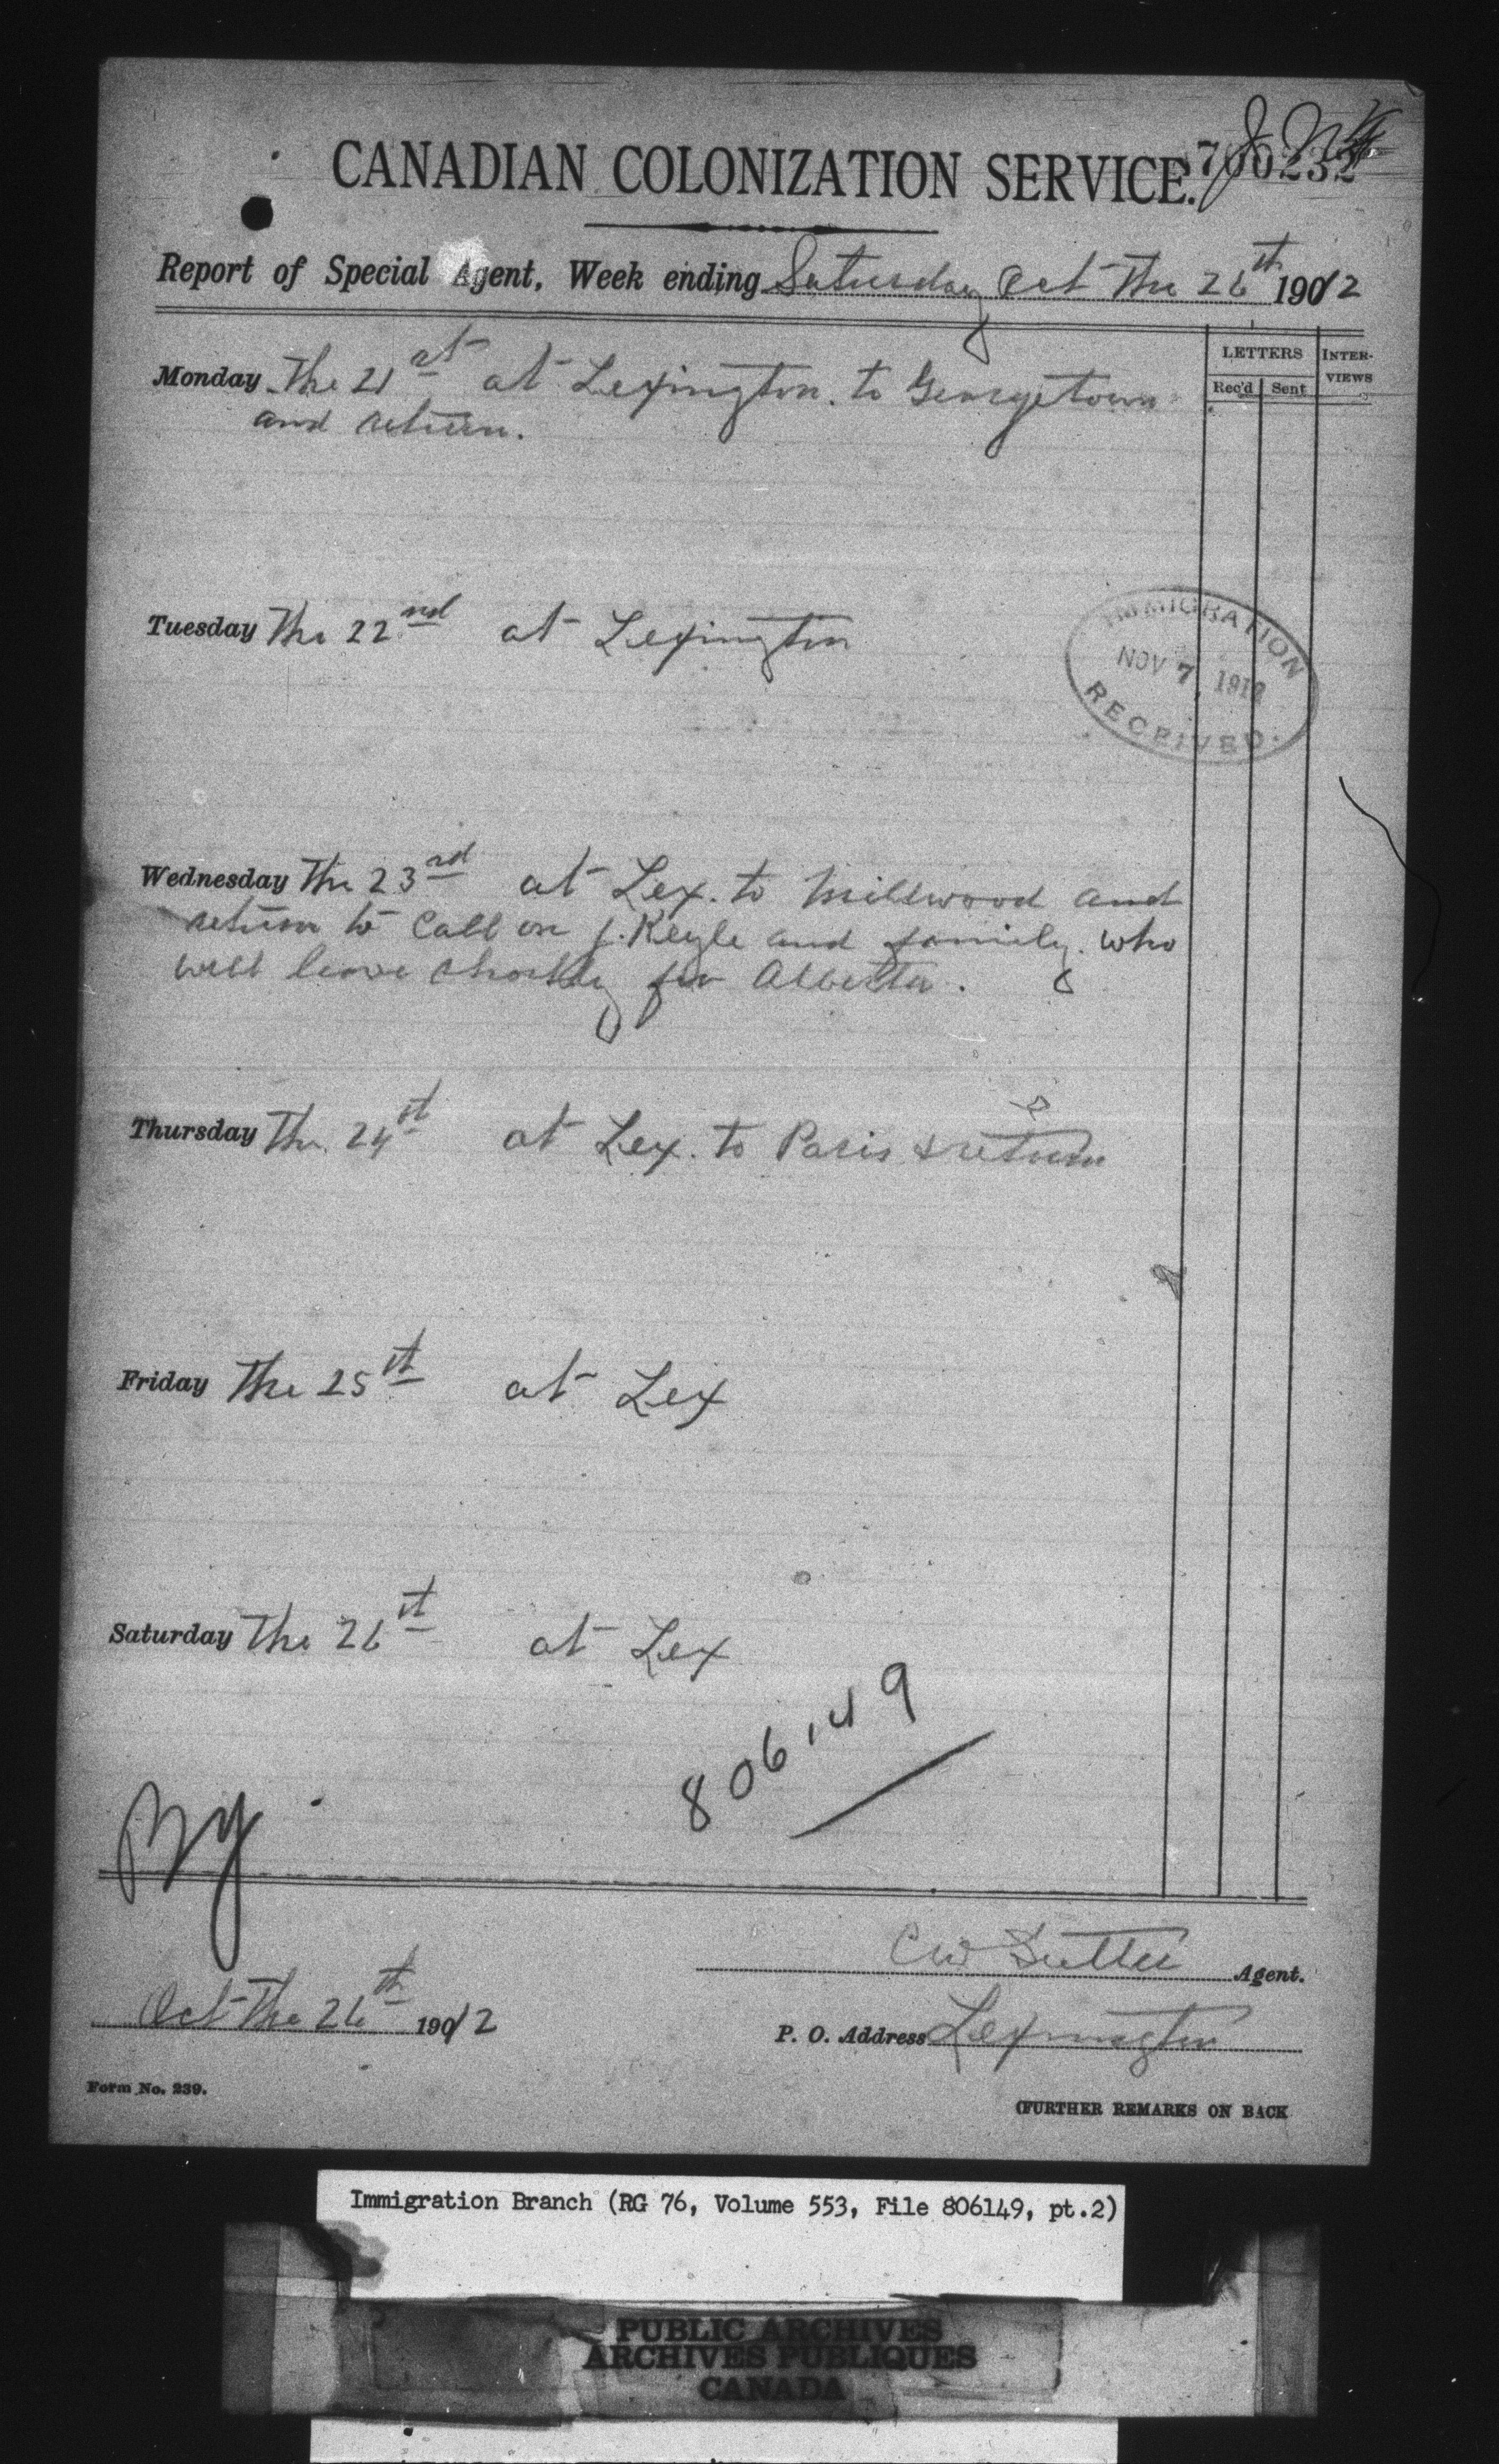 CANADIAN COLONIZATION SERVICE.
700232
Report of Special Agent, Week ending Saturday Oct The 26th 1912
LETTERS
INTER-VIEWS
Rec'd Sent
Monday The 21st at Lexington. to Georgetown
and return.
Tuesday The 22nd at Lexington
IMMIGRATION
NOV 7 1912
RECEIVED.
Wednesday The 23rd at Lex. to Millwood and
return to Call on J. Keyle and family. who
will leave shortly for Alberta.
Thursday The 24st at Lex. to Paris & return
Friday The 25st at Lex
Saturday The 26st at Lex
806149
C W Sutter Agent.
Oct The 26th 1912
P. O. Address Lexington
Form No. 239.
(FURTHER REMARKS ON BACK
Immigration Branch (RG 76, Volume 553, File 806149, pt.2)
PUBLIC ARCHIVES
ARCHIVES PUBLIQUES
CANADA